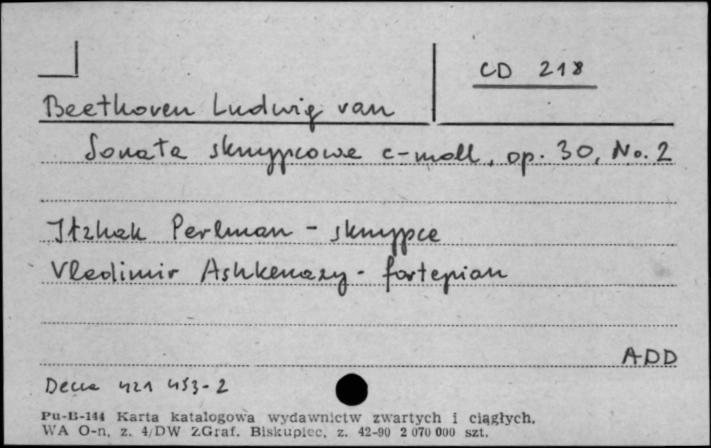 CD 218
Beethoven Ludwig van
Sonata skrzypcowa c-moll, op. 30, No. 2
Itzhak Perlman - skrzypce
Vladimir Ashkenazy - fortepian
ADD
Decca 421 453-2
Pu-B-144 Karta katalogowa wydawnictw zwartych i ciągłych.
WA O-n, z. 4/DW ZGraf. Biskupiec, z. 42-90 2 070 000 szt.